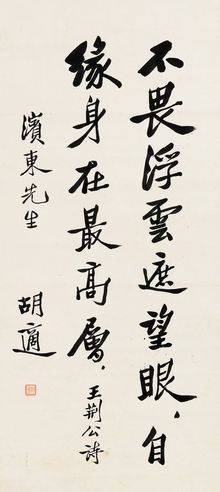 不畏浮雲遮望眼，自
緣身在最高層，王荆公詩
濱東先生
胡適